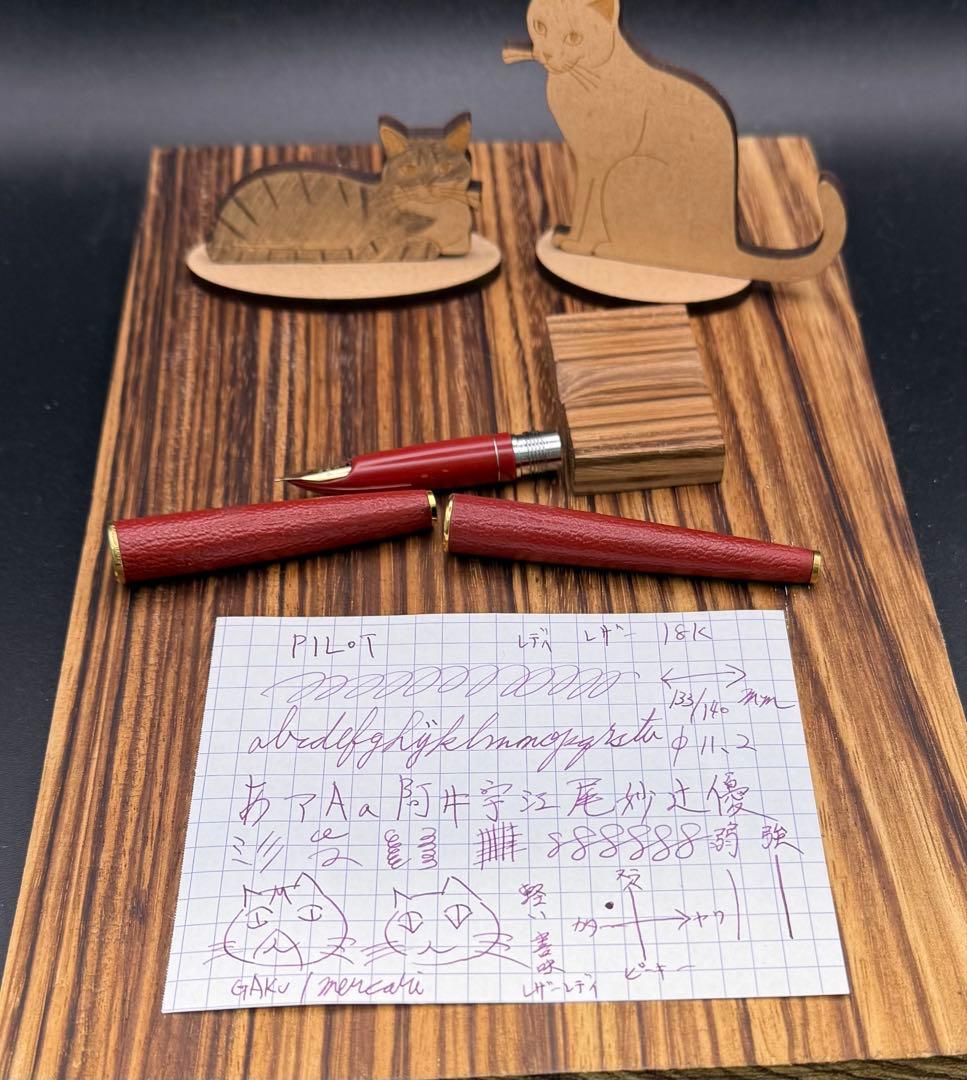 PILOT レディ レザー 18K
133/140 mm
abcdefghijklmnopqrstu φ11.2
あアAa阿井宇江尾妙辻優
弱 強
軽い書味
レザーレディ
カター ヤワ
GAKU/mercari